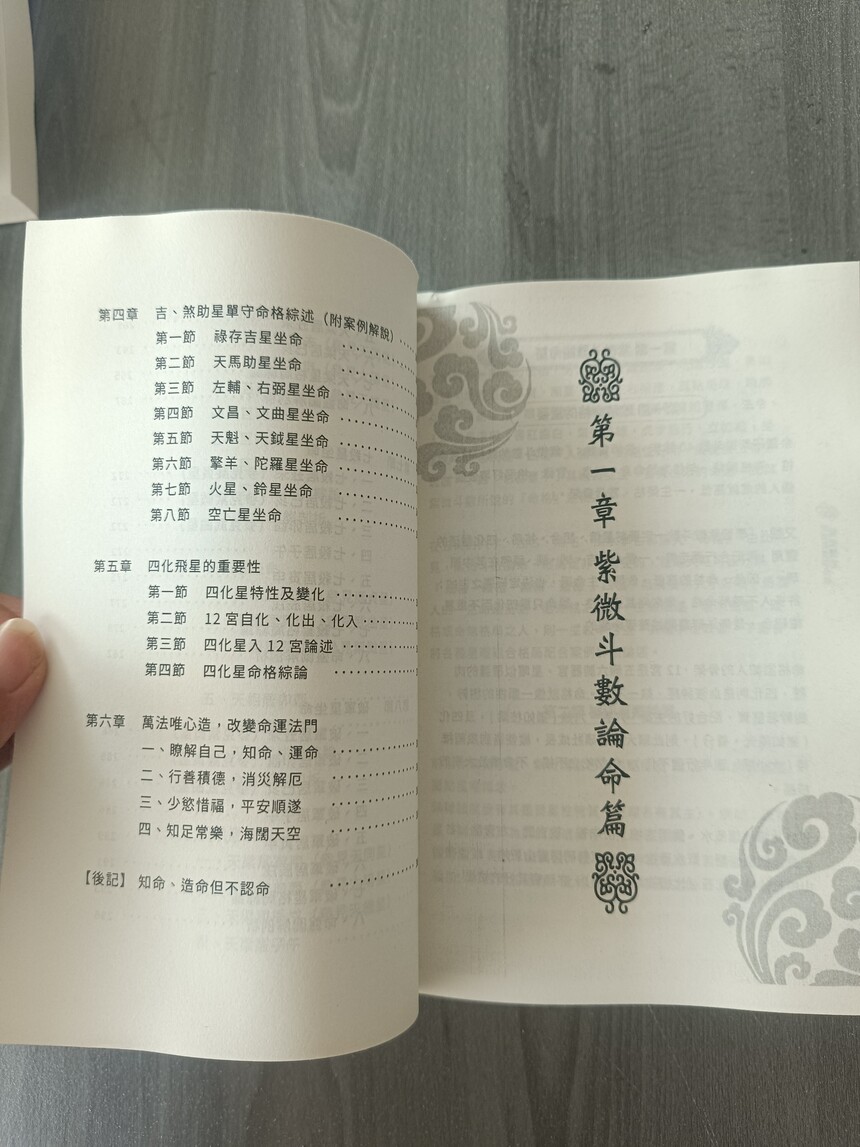 第四章 吉、煞助星單守命格綜述（附案例解說）……
第一節 祿存吉星坐命 ……
第二節 天馬助星坐命 ……
第三節 左輔、右弼星坐命 ……
第四節 文昌、文曲星坐命 ……
第五節 天魁、天鉞星坐命 ……
第六節 擎羊、陀羅星坐命 ……
第七節 火星、鈴星坐命 ……
第八節 空亡星坐命 ……
第五章 四化飛星的重要性
第一節 四化星特性及變化 ……
第二節 12宮自化、化出、化入……
第三節 四化星入12宮論述 ……
第四節 四化星命格綜論 ……
第六章 萬法唯心造，改變命運法門
一、瞭解自己，知命、運命 ……
二、行善積德，消災解厄 ……
三、少慾惜福，平安順遂 ……
四、知足常樂，海闊天空 ……
【後記】知命、造命但不認命 ……
第一章紫微斗數論命篇